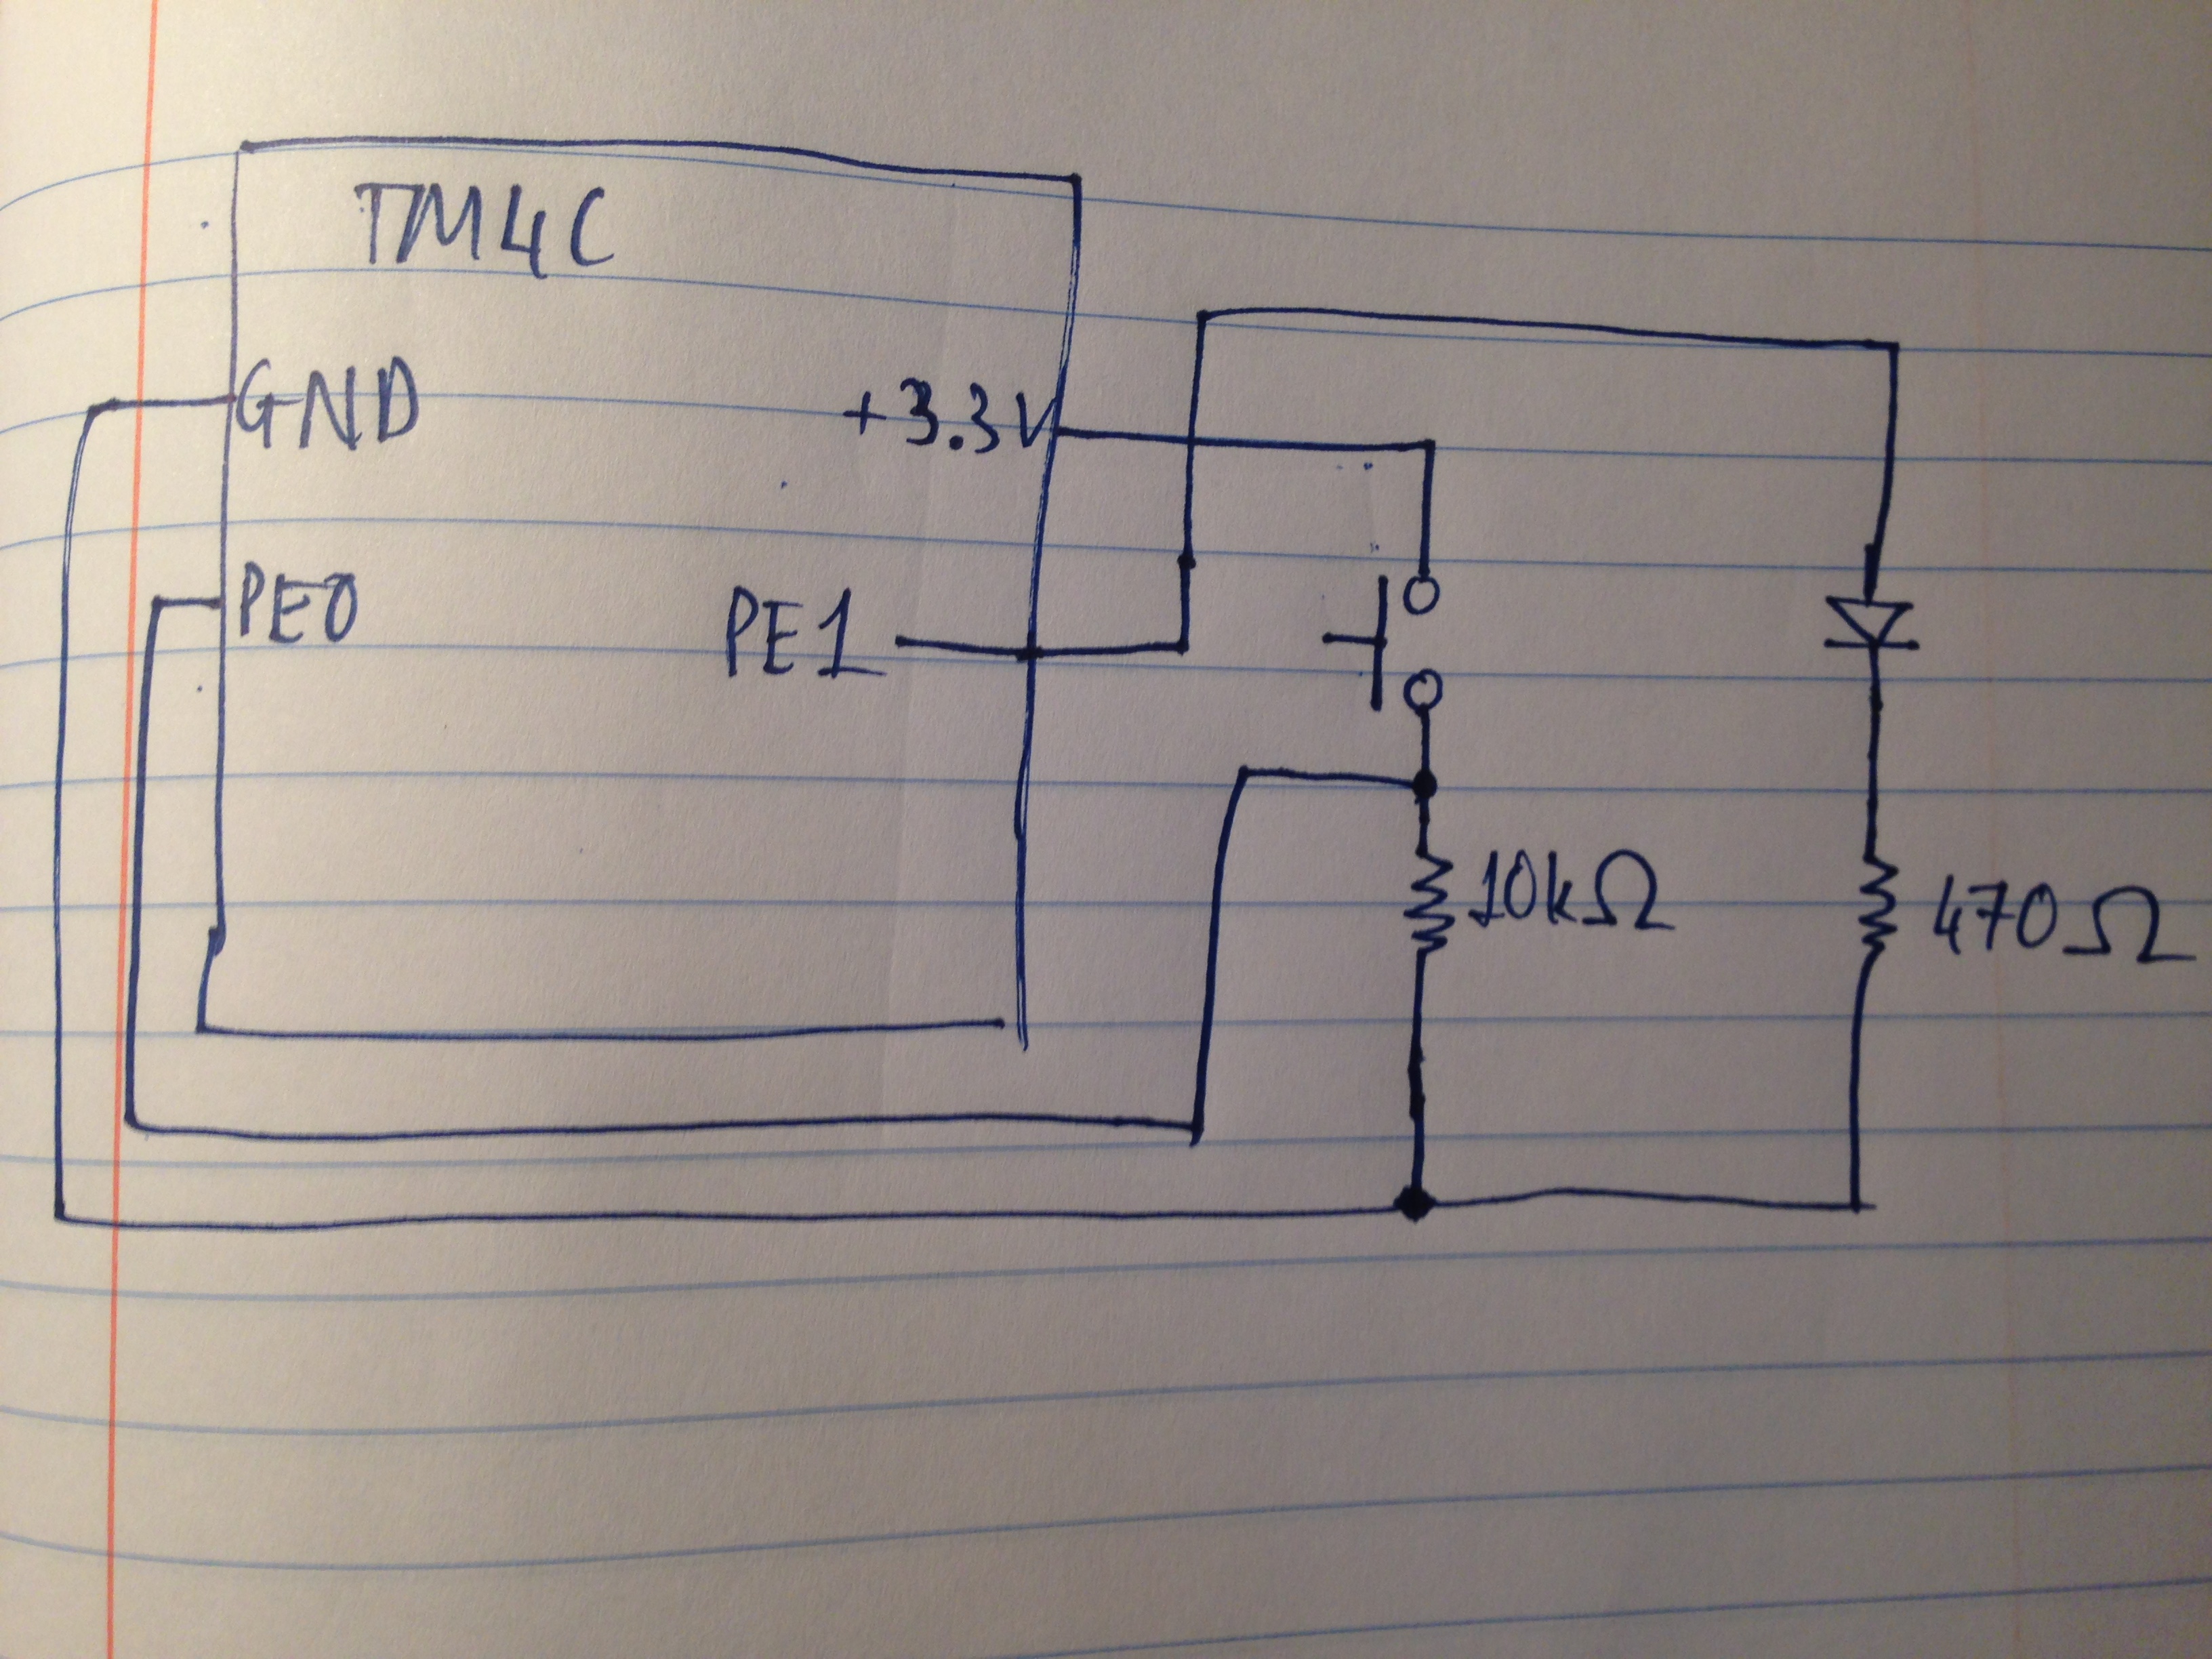 TM4C
GND
+3.3V
PE0
PE1
10kΩ
470Ω